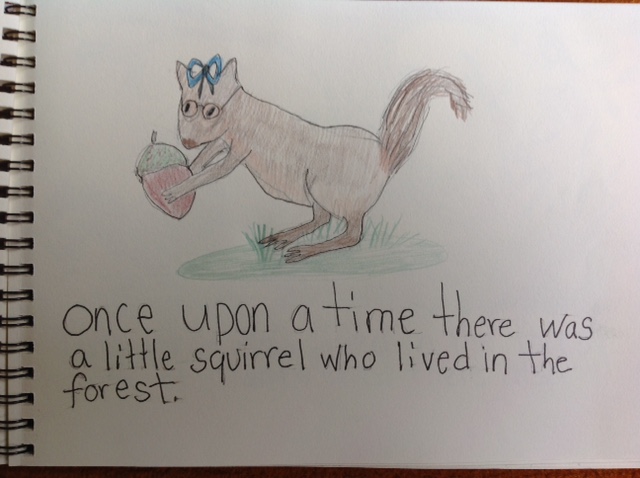 once upon a time there was
a little squirrel who lived in the
forest.